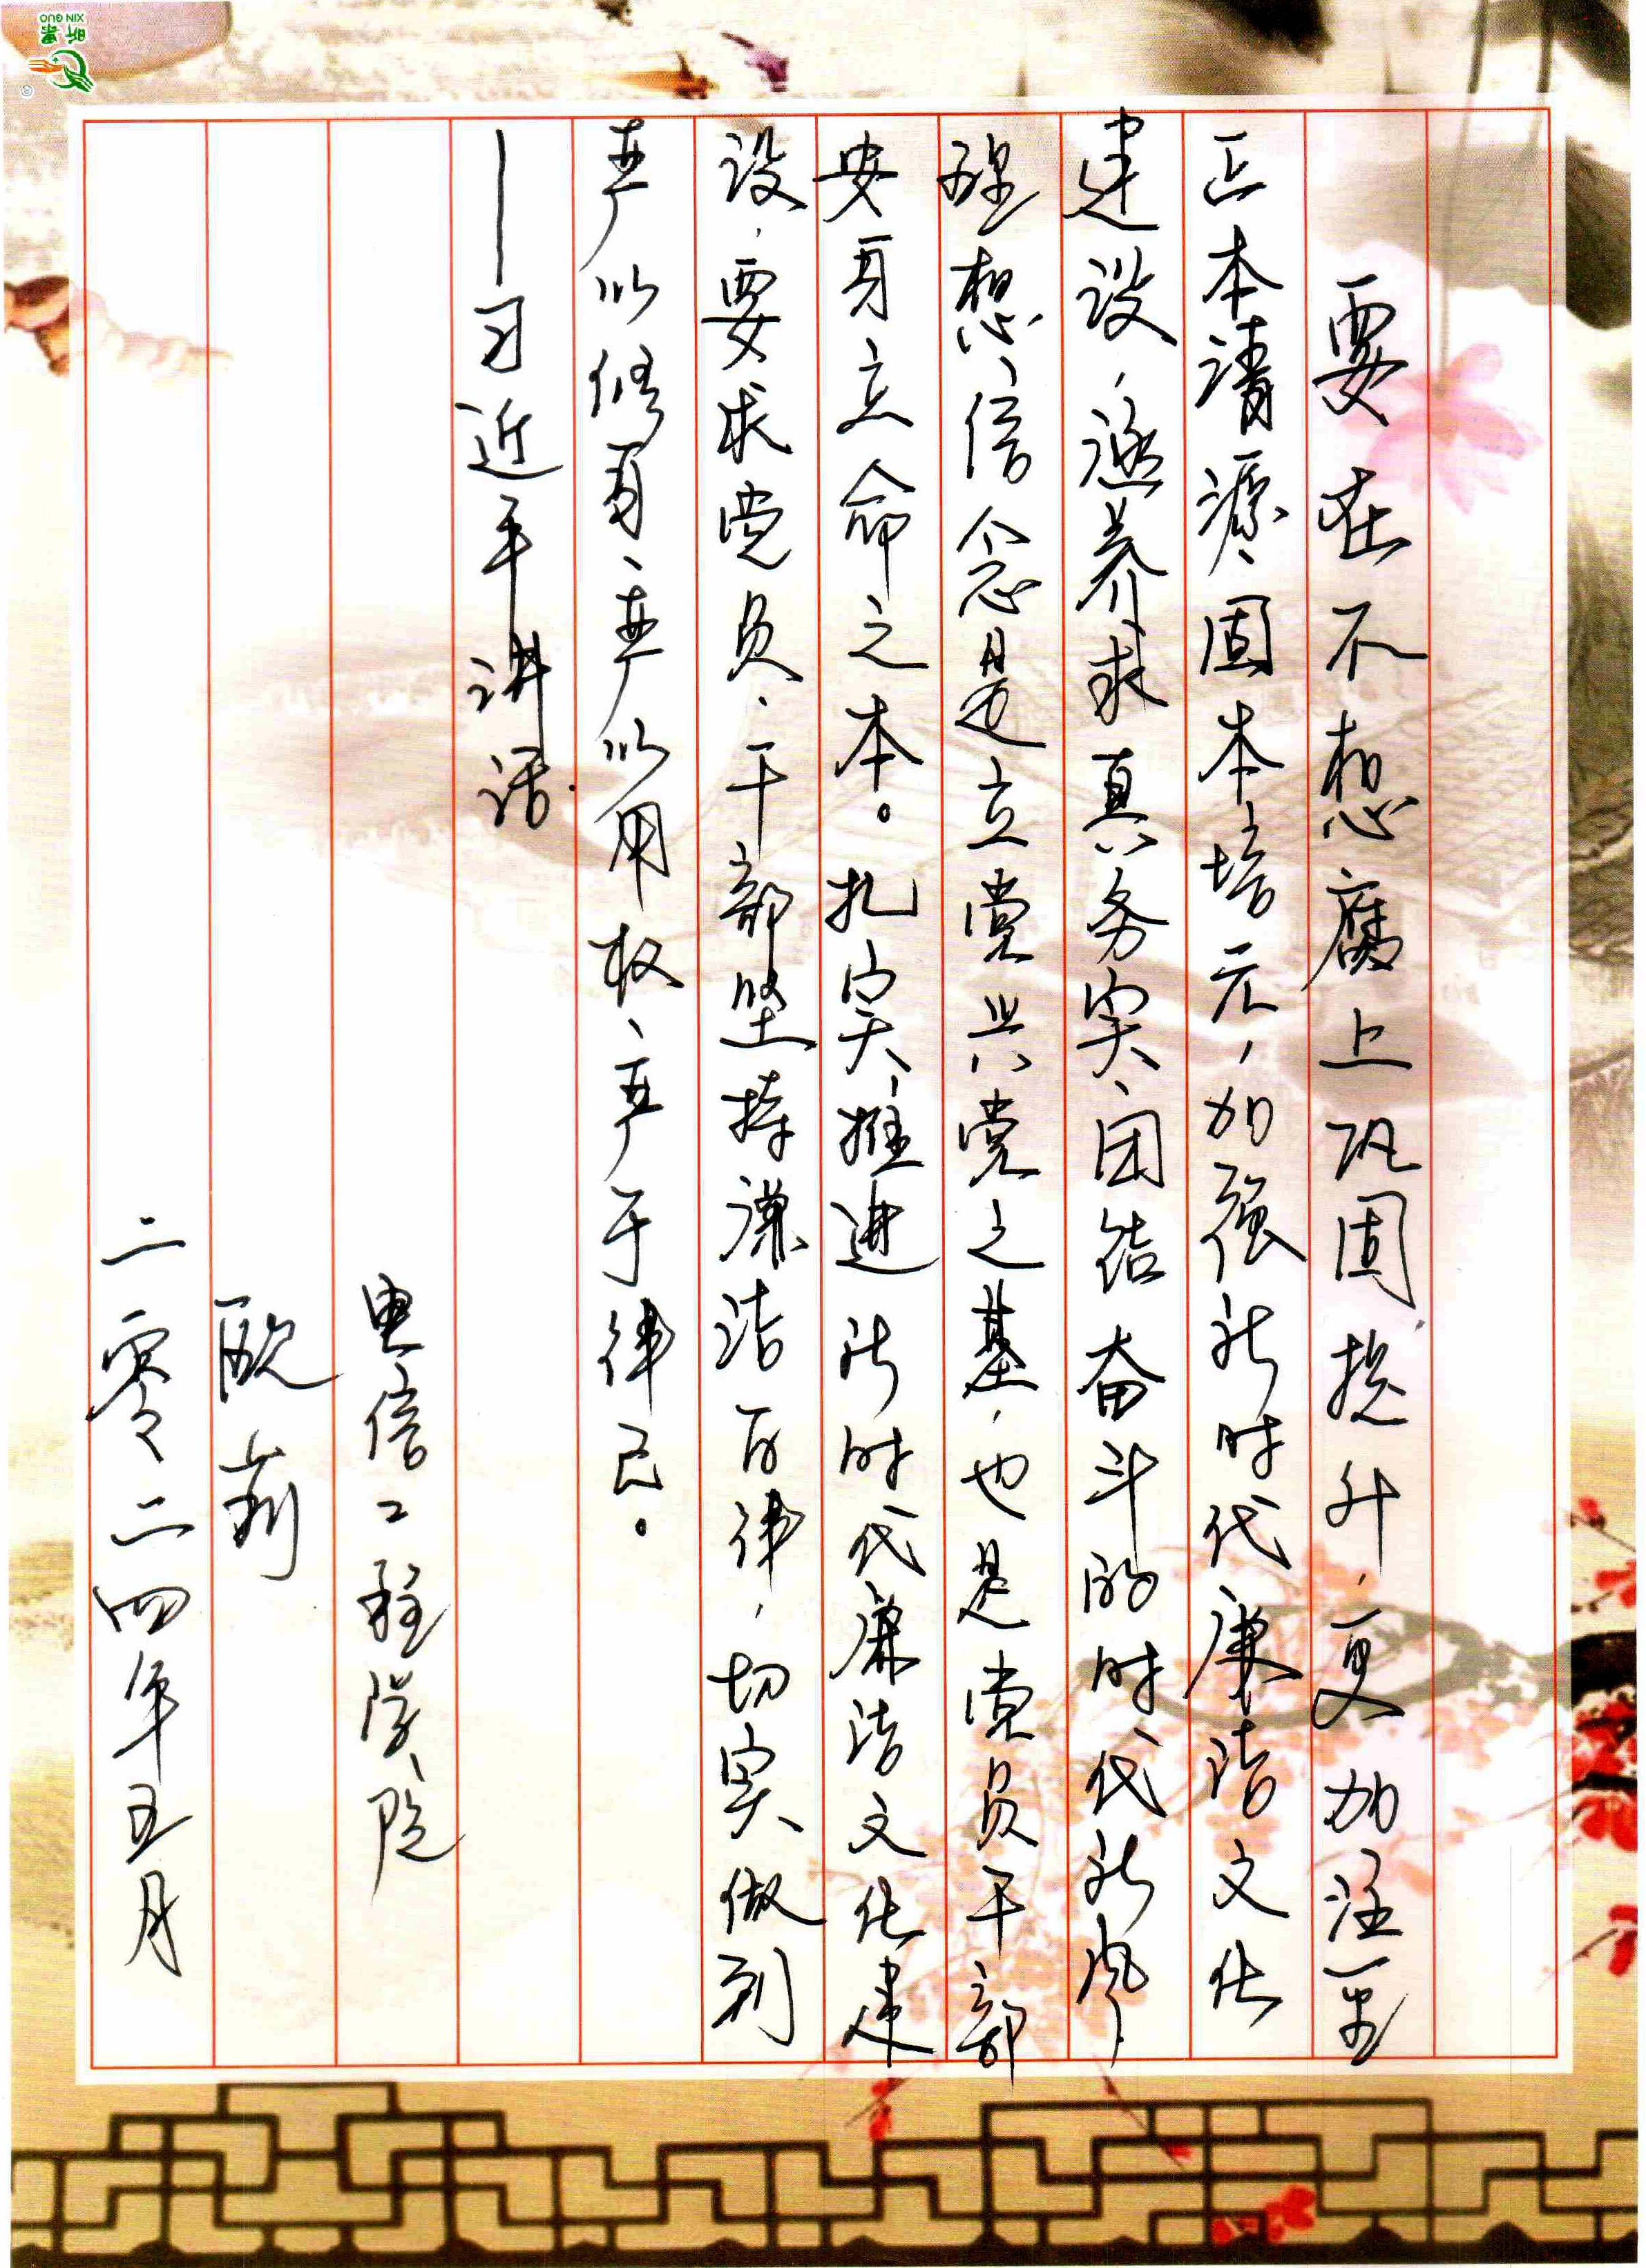 要在不想腐上巩固提升，更加注重
正本清源、固本培元，加强新时代廉洁文化
建设，涵养求真务实、团结奋斗的时代新风
理想、信念是立党兴党之基，也是党员干部
安身立命之本。扎实推进新时代廉洁文化建
设，要求党员、干部坚持廉洁自律，切实做到
严以修身、严以用权、严于律己。
——习近平讲话
电信工程学院
二零二四年五月
XIN GUO